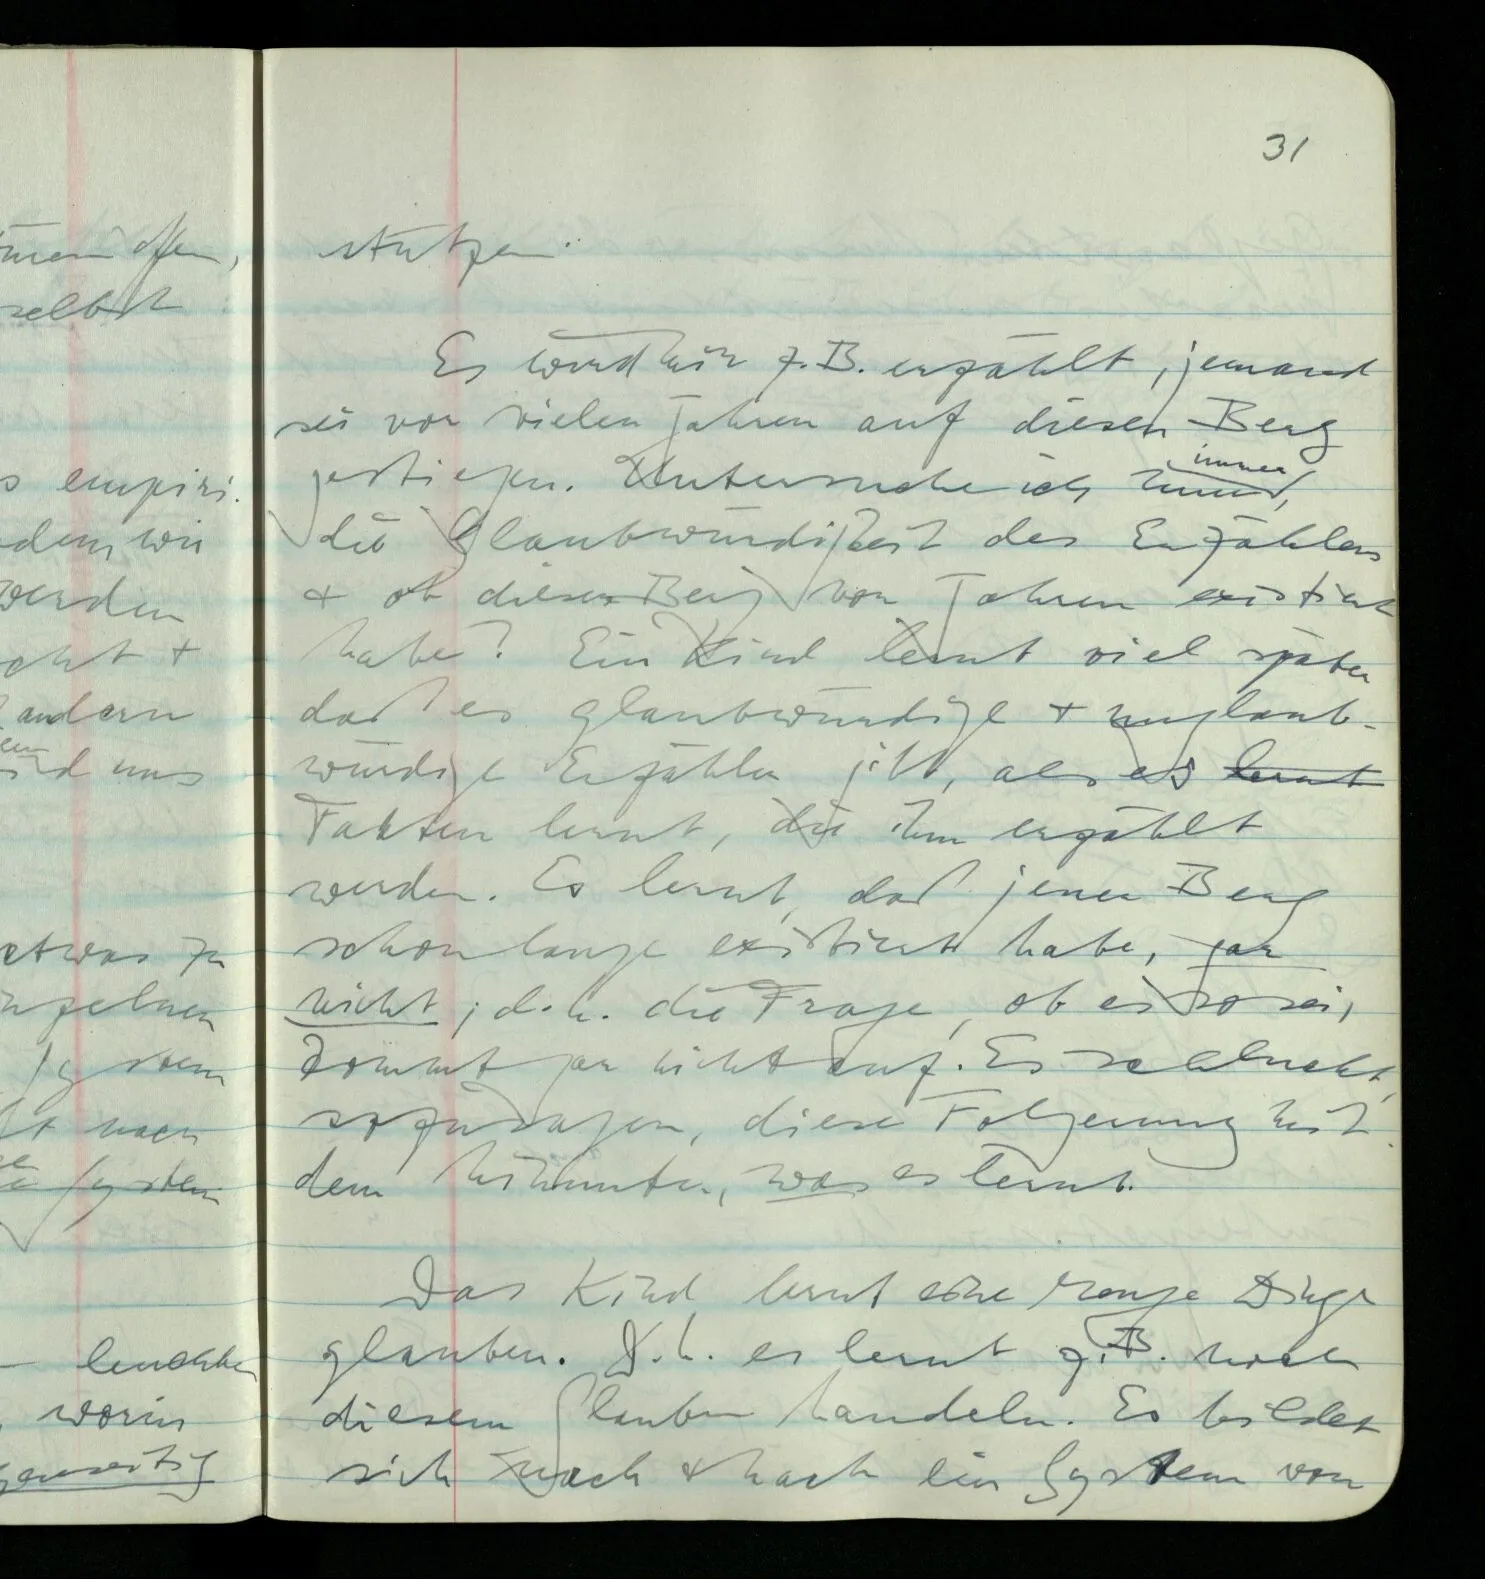 31
ımmer offen,
selbst
s empiri.
odern wie
werden
acht +
andern
wird uns
etwas zu
inzelnen
System
st nach
System
– leuchten
, worin
genseitig
stützen.
Es wird mir z.B. erzählt, jemand
sei vor vielen Jahren auf diesen Berg
gestiegen. Untersuche ich immer
immer,
die Glaubwürdigkeit des Erzählers
+ ob dieser Berg vor Jahren existiert
habe? Ein Kind lernt viel später
daß es glaubwürdige + unglaub-
würdige Erzähler gibt, als es lernt
Fakten lernt, die ihm erzählt
werden. Es lernt, daß jener Berg
schon lange existiert habe, gar
nicht; d.h. die Frage, ob es so sei,
kommt gar nicht auf. Es schluckt,
sozusagen, diese Folgerung mit
dem hinunter, was es lernt.
Das Kind lernt eine Menge Dinge
glauben. D.h. es lernt z.B. nach
diesem Glauben handeln. Es bildet
sich nach + nach ein System von